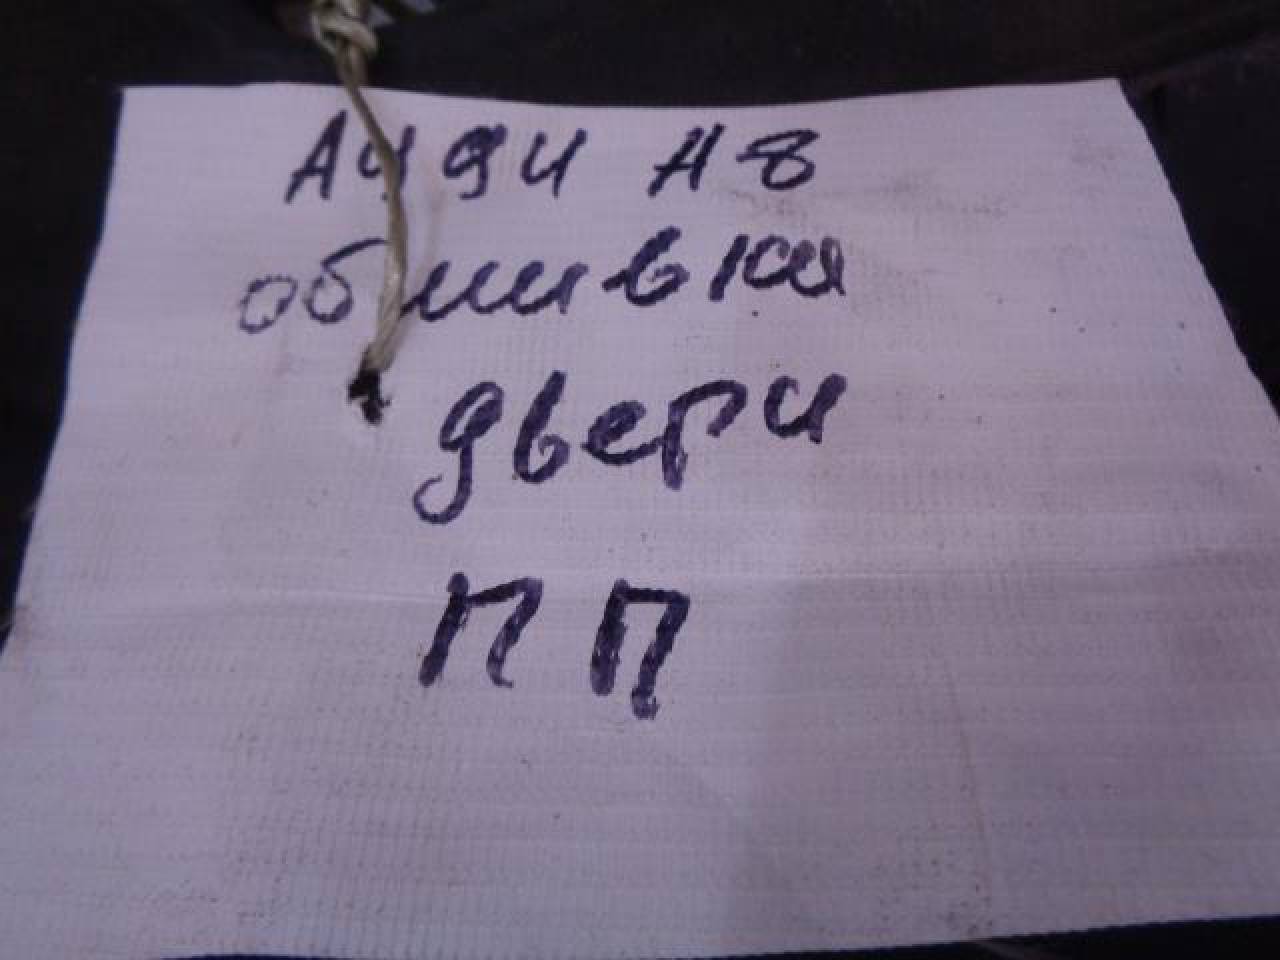 Ауди А8
обшивка
двери
ПП